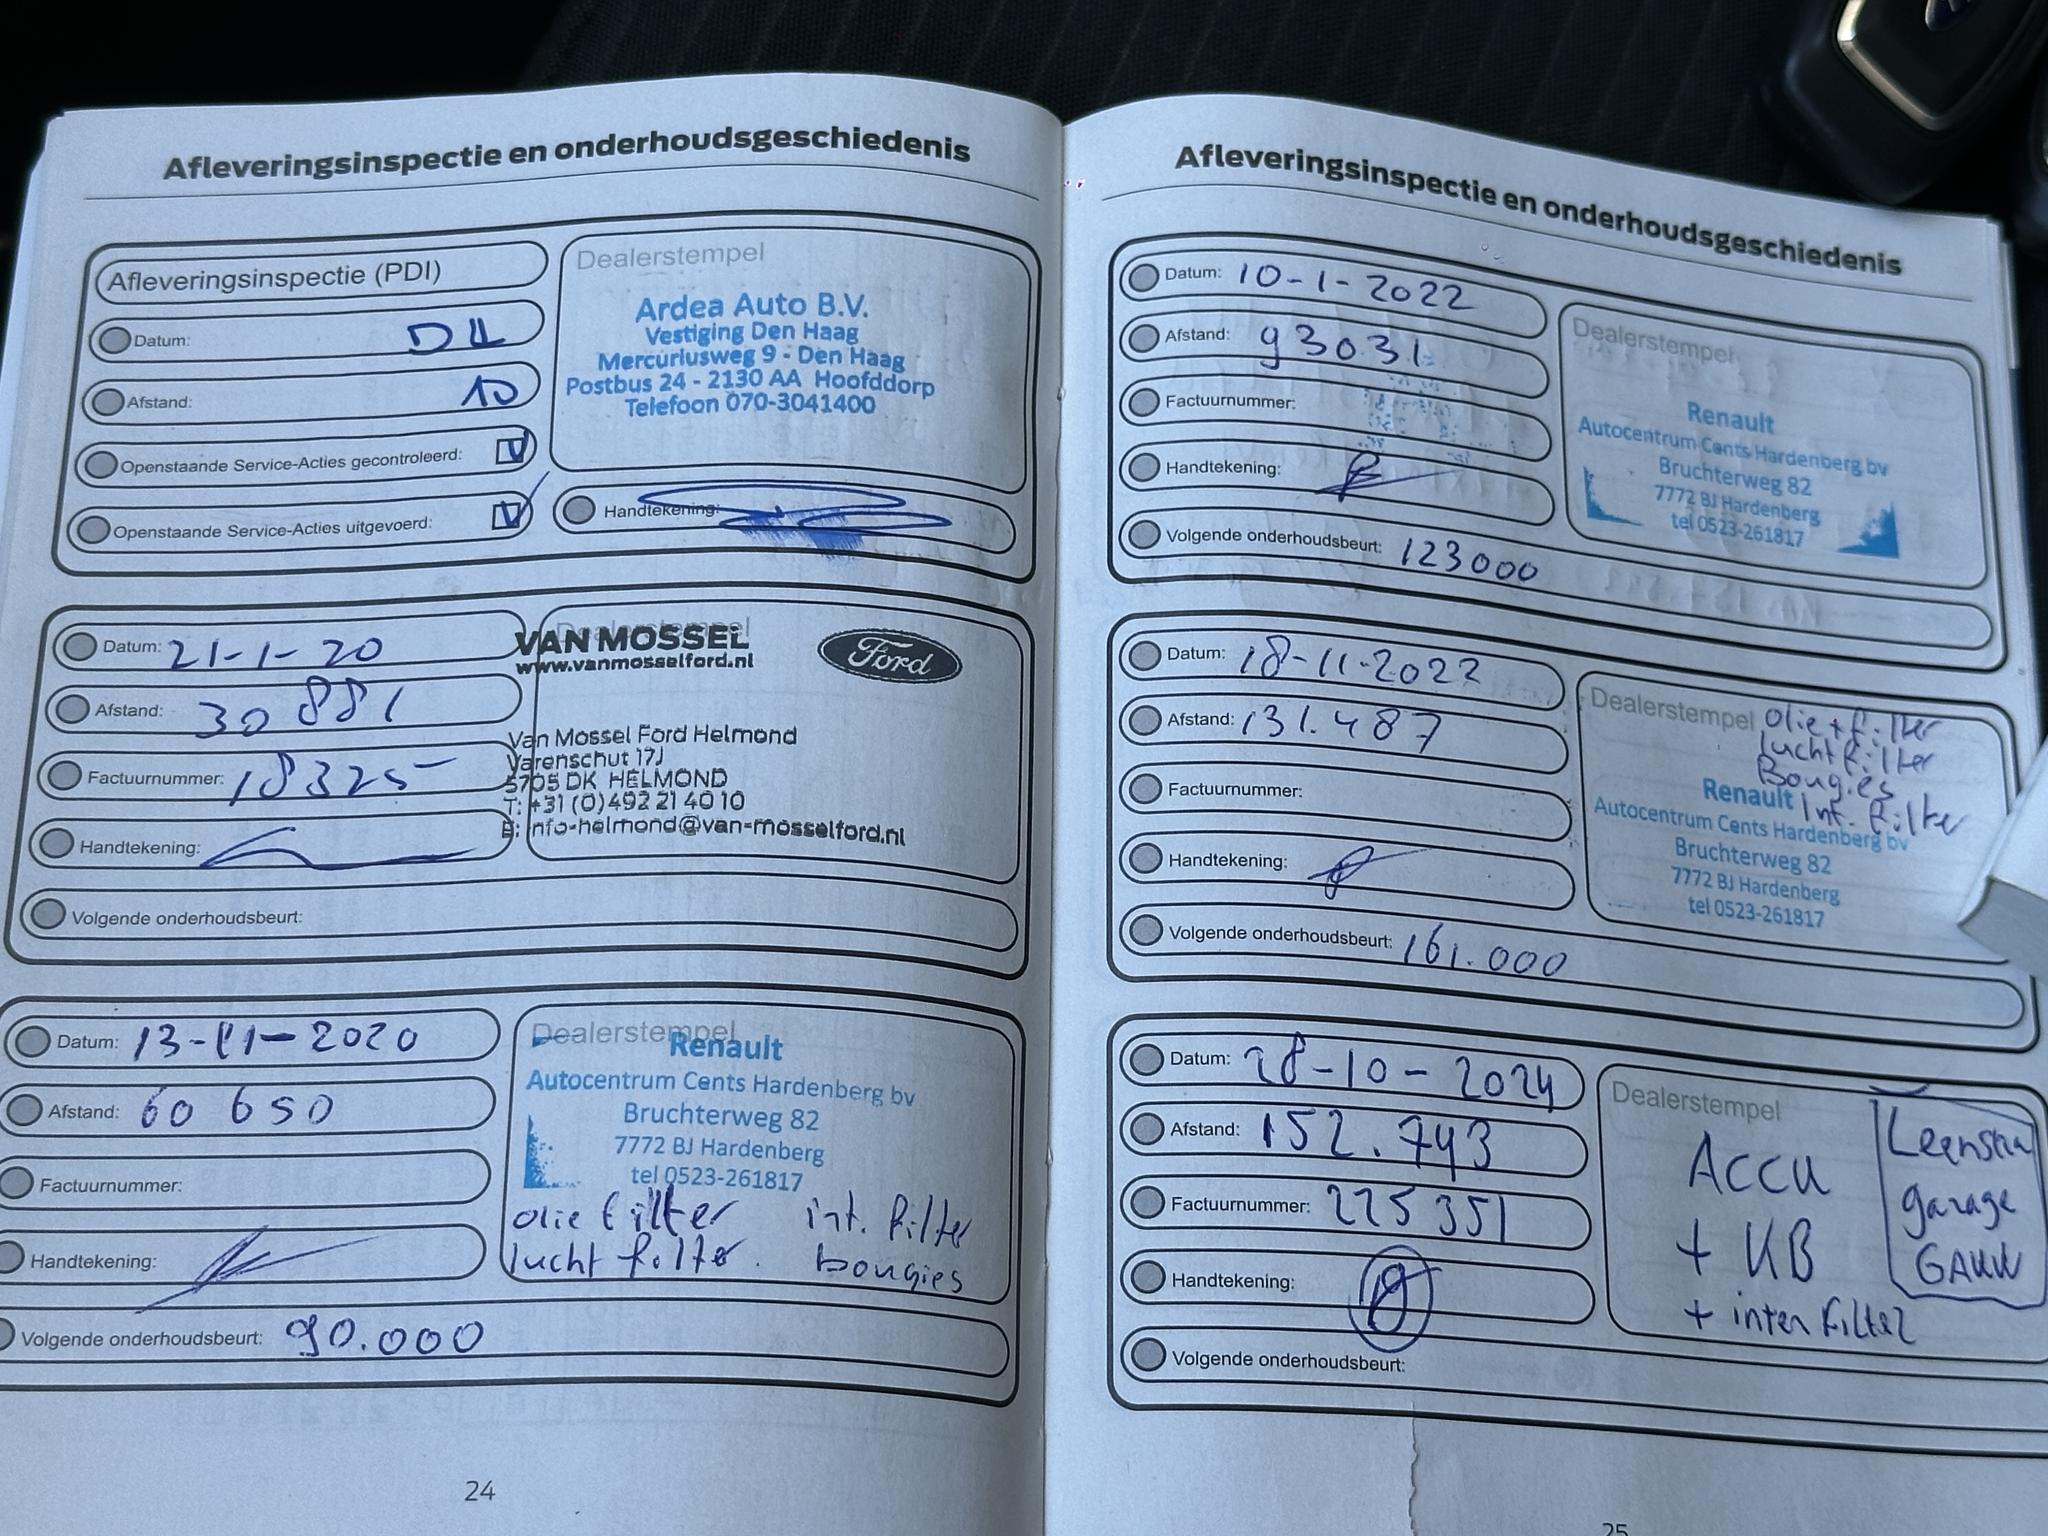 Afleveringsinspectie en onderhoudsgeschiedenis
Afleveringsinspectie (PDI)
Datum:
Afstand: 10
Openstaande Service-Acties gecontroleerd: V
Openstaande Service-Acties uitgevoerd: V
Dealerstempel
Ardea Auto B.V.
Vestiging Den Haag
Mercuriusweg 9 - Den Haag
Postbus 24 - 2130 AA Hoofddorp
Telefoon 070-3041400
Handtekening:
Datum: 21-1-20
Afstand: 30 881
Factuurnummer: 18325
Handtekening:
Volgende onderhoudsbeurt:
Dealerstempel
VAN MOSSEL
www.vanmosselford.nl
Ford
Van Mossel Ford Helmond
Varenschut 17J
5705 DK HELMOND
T: +31 (0)492 21 40 10
E: info-helmond@van-mosselford.nl
Datum: 13-11-2020
Afstand: 60 650
Factuurnummer:
Handtekening:
Volgende onderhoudsbeurt: 90.000
Dealerstempel
Renault
Autocentrum Cents Hardenberg bv
Bruchterweg 82
7772 BJ Hardenberg
tel 0523-261817
olie filter int. filter
lucht filter. bougies
24
Afleveringsinspectie en onderhoudsgeschiedenis
Datum: 10-1-2022
Afstand: 93031
Factuurnummer:
Handtekening:
Volgende onderhoudsbeurt: 123000
Dealerstempel
Renault
Autocentrum Cents Hardenberg bv
Bruchterweg 82
7772 BJ Hardenberg
tel 0523-261817
Datum: 18-11-2022
Afstand: 131.487
Factuurnummer:
Handtekening:
Volgende onderhoudsbeurt: 161.000
Dealerstempel
olie + filter
lucht filter
Bougies
Int. filter
Renault
Autocentrum Cents Hardenberg bv
Bruchterweg 82
7772 BJ Hardenberg
tel 0523-261817
Datum: 28-10-2024
Afstand: 152.743
Factuurnummer: 225351
Handtekening:
Volgende onderhoudsbeurt:
Dealerstempel
Accu
+ KB
+ inter filter
garage
25